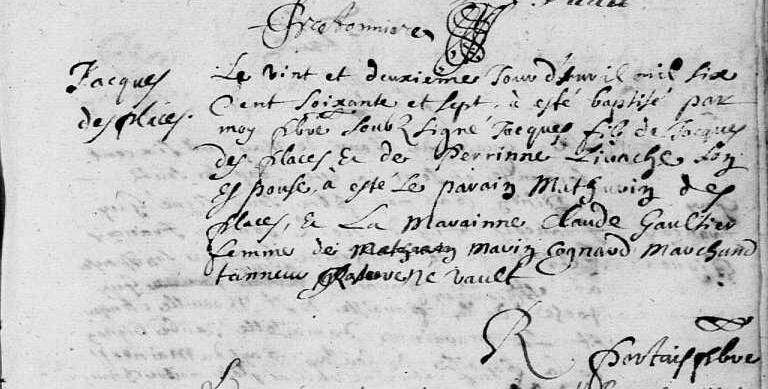 Jacques
des places.
Le vint et deuxieme Jour d'Avril mil six
Cent Soixante et sept, à esté baptisé par
moy pbre soubzsigné Jacques fils de Jacques
des places Et de Perrinne Livache son
Espouse, à esté Le parain Mathurin des
places, Et La marainne Claude Gaultier
femme de Marin Cognard Marchand
tanneur
R
Portais pbre